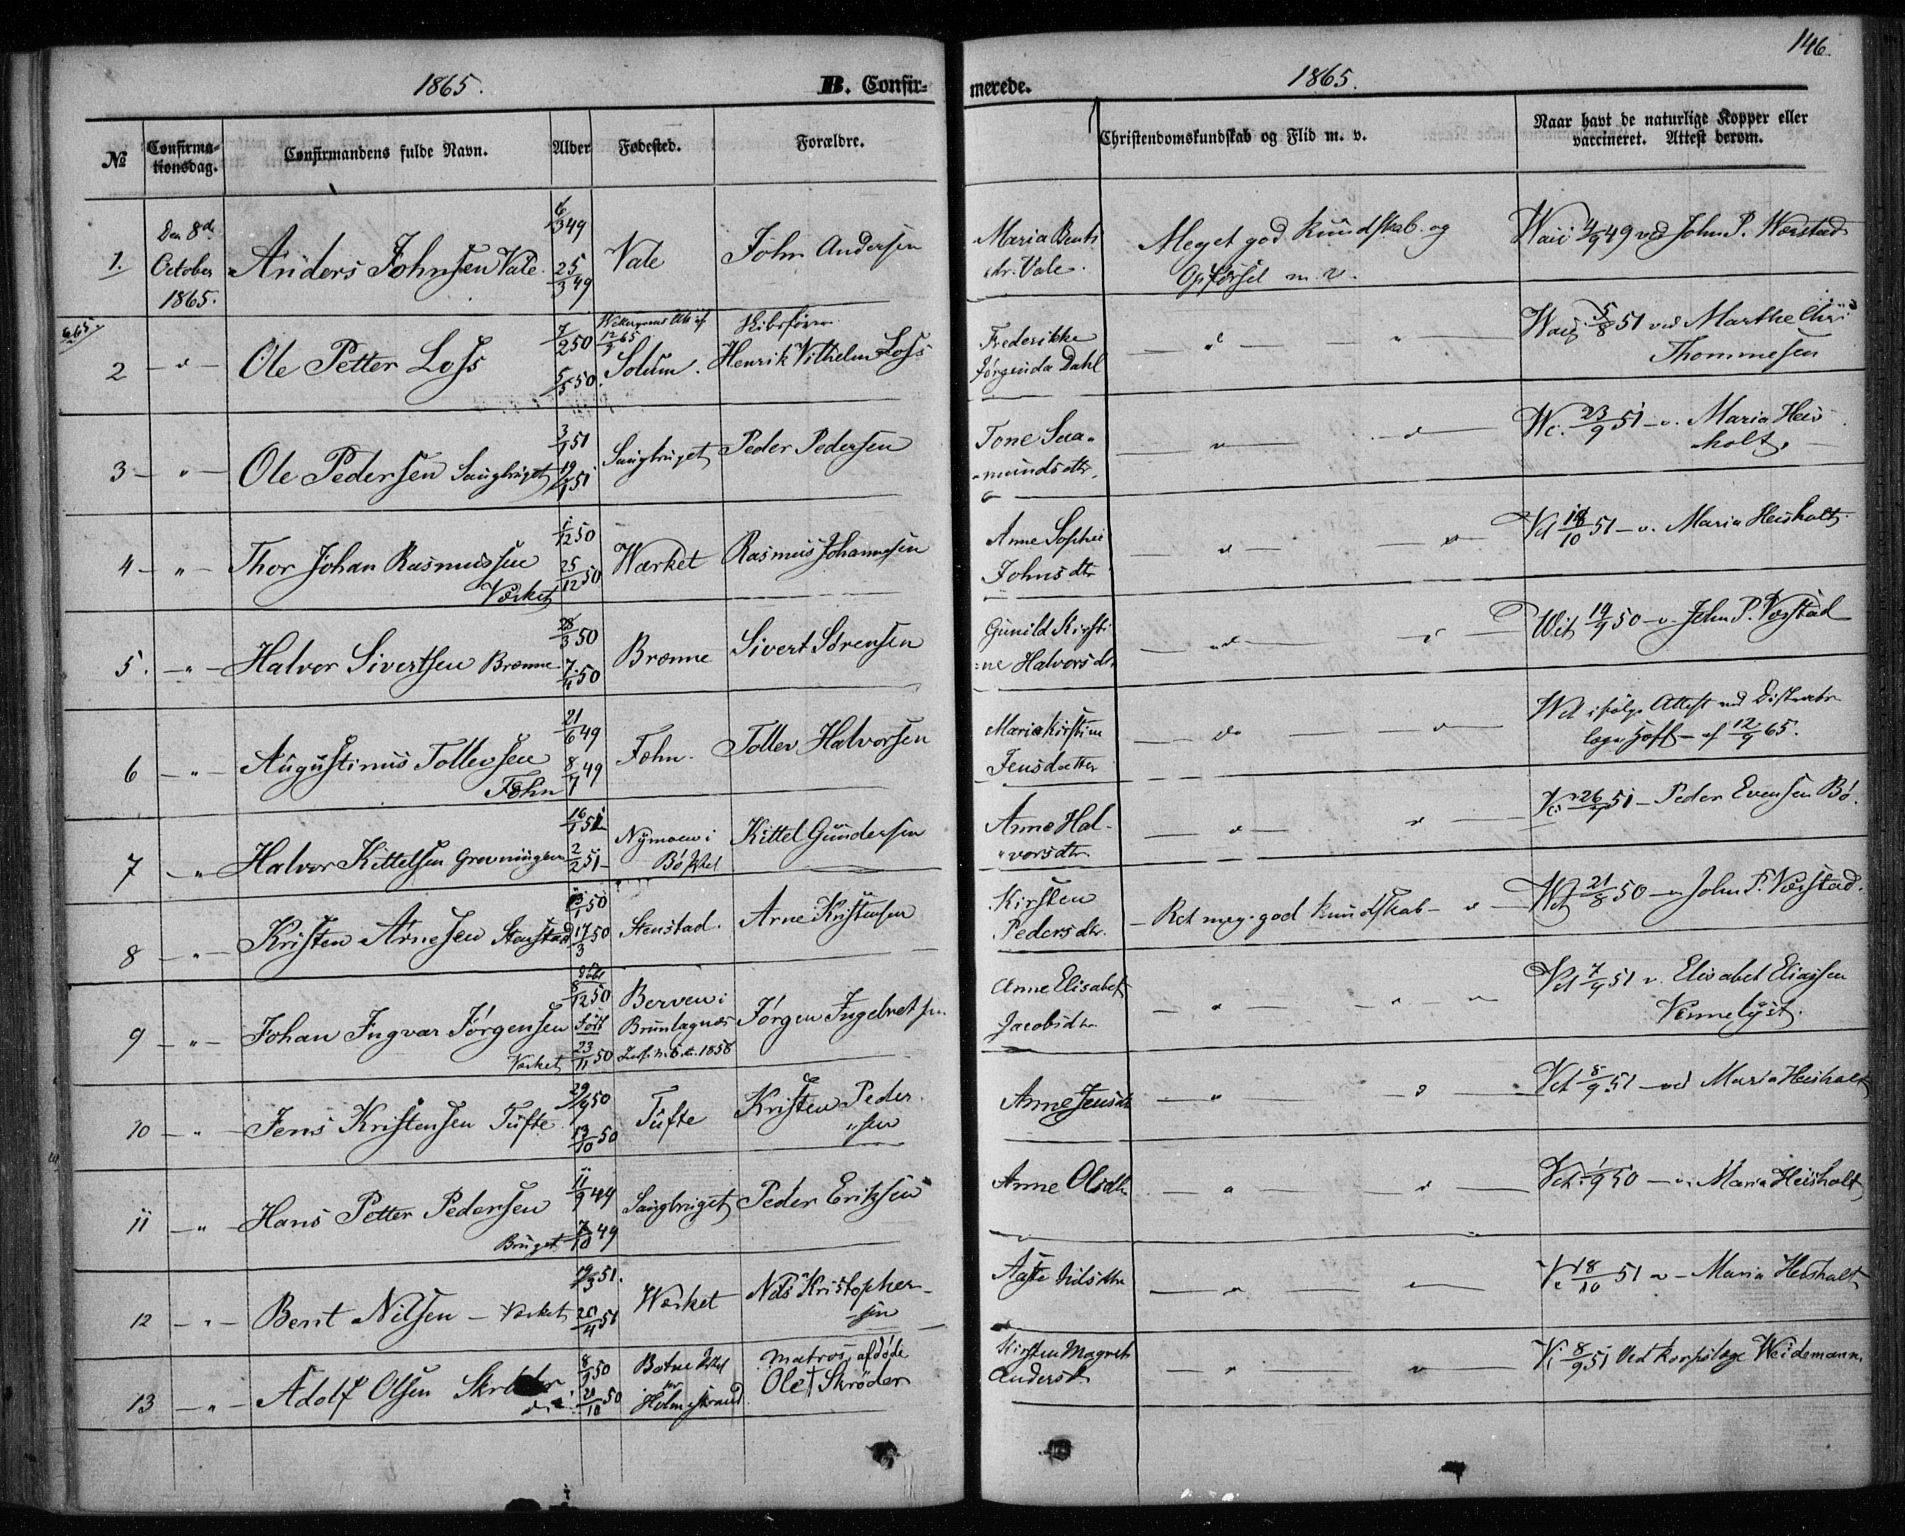 146.
1865. B. Confir- merede. 1865.
No Confirma-tionsdag. Confirmandens fulde Navn. Alder Fødested. Forældre. Christendomskundskab og Flid m. v. Naar havt de naturlige Kopper eller vaccineret. Attest derom.
1. Den 8de October 1865. Anders Johnsen Vale 49 25/3 49 Vale John Andersen Maria Bents dr. Vale. Meget god Kundskab og Opførsel m. v. 49 ved John P. Værstad
2 — " — Ole Petter Loss 7/2 50 5/5 50. Solum. Henrik Vilhelm Loss Frederikke Jørginda Dahl 5/8 51 ved Marthe Thommesen
3 — " — Ole Pedersen Saugbruget 3/1 51 19/1 51 Saugbruget Peder Pedersen Tone Saa-mundsdtr. Vc. 23/9 51 v. Maria Heis-holt.
4 — " — Thor Johan Rasmussen Værket 1/12 50 25/12 50 Værket Rasmus Johannesen Anne Sophie Johnsdtr 18/10 51 — v. Maria Heisholt.
5. — " — Halvor Sivertsen Brønne 28/3 50 7/4 50 Brønne Sivert Sørensen Gunild Kirsti-ne Halvorsdtr 19/9 50 v. John P. Værstad
6 — " — Augustinus Tollevsen Føhn 21/6 49 8/7 49 Føhn. Tollev Halvorsen Maria Kirstine Jensdatter ifølge Attest ved Distrikts-læge Hoff af 12/9 65.
7 — " Halvor Kittelsen Grovningen 16/1 51 2/2 51 Nymoen i Bø Kittel Gundersen Anne Hal-vorsdtr. 51 — Peder Evensen Bø.
8 — " — Kristen Arnesen Stenstad 50 17/3 50 Stenstad. Arne Kristensen Kirsten Pedersdtr. — Ret meg. god Kundskab — " — Vct 21/8 50 — v John P. Værstad.
9 — " — Johan Ingvar Jørgensen Værket Døbt 8/12 50 født 23/11 50 Berven i Brunlagnæs 1858 Jørgen Ingebretsen Anne Elisabet Jacobsdtr Vct 7/9 51 v. Elisabet Eliassen Vennelyst.
10 — " — Jens Kristensen Tufte 29/9 50 13/10 50 Tufte Kristen Peder "sen Anne Jensdtr Vct 8/9 51 — ved Maria Heisholt
11 — " — Hans Petter Pedersen Bruget 11/9 49 7/10 49 Saugbruget Peder Eriksen Anne Olsdtr Vct 1/9 50 — v. Maria Heisholt
12 — " — Berit Nilsen — Værket 51. 20/4 51 Værket Nils Kristopher-sen Aaste Nilsdtr Vc 18/10 51 v — Maria Heisholt
13 — " — Adolf Olsen 8/9 50 20/10 50 Botne Holmestrand matros, afdøde Ole † Skrøder Kirsten Magreth Andersd. 8/9 51 Ved Korpslæge Weidemann.